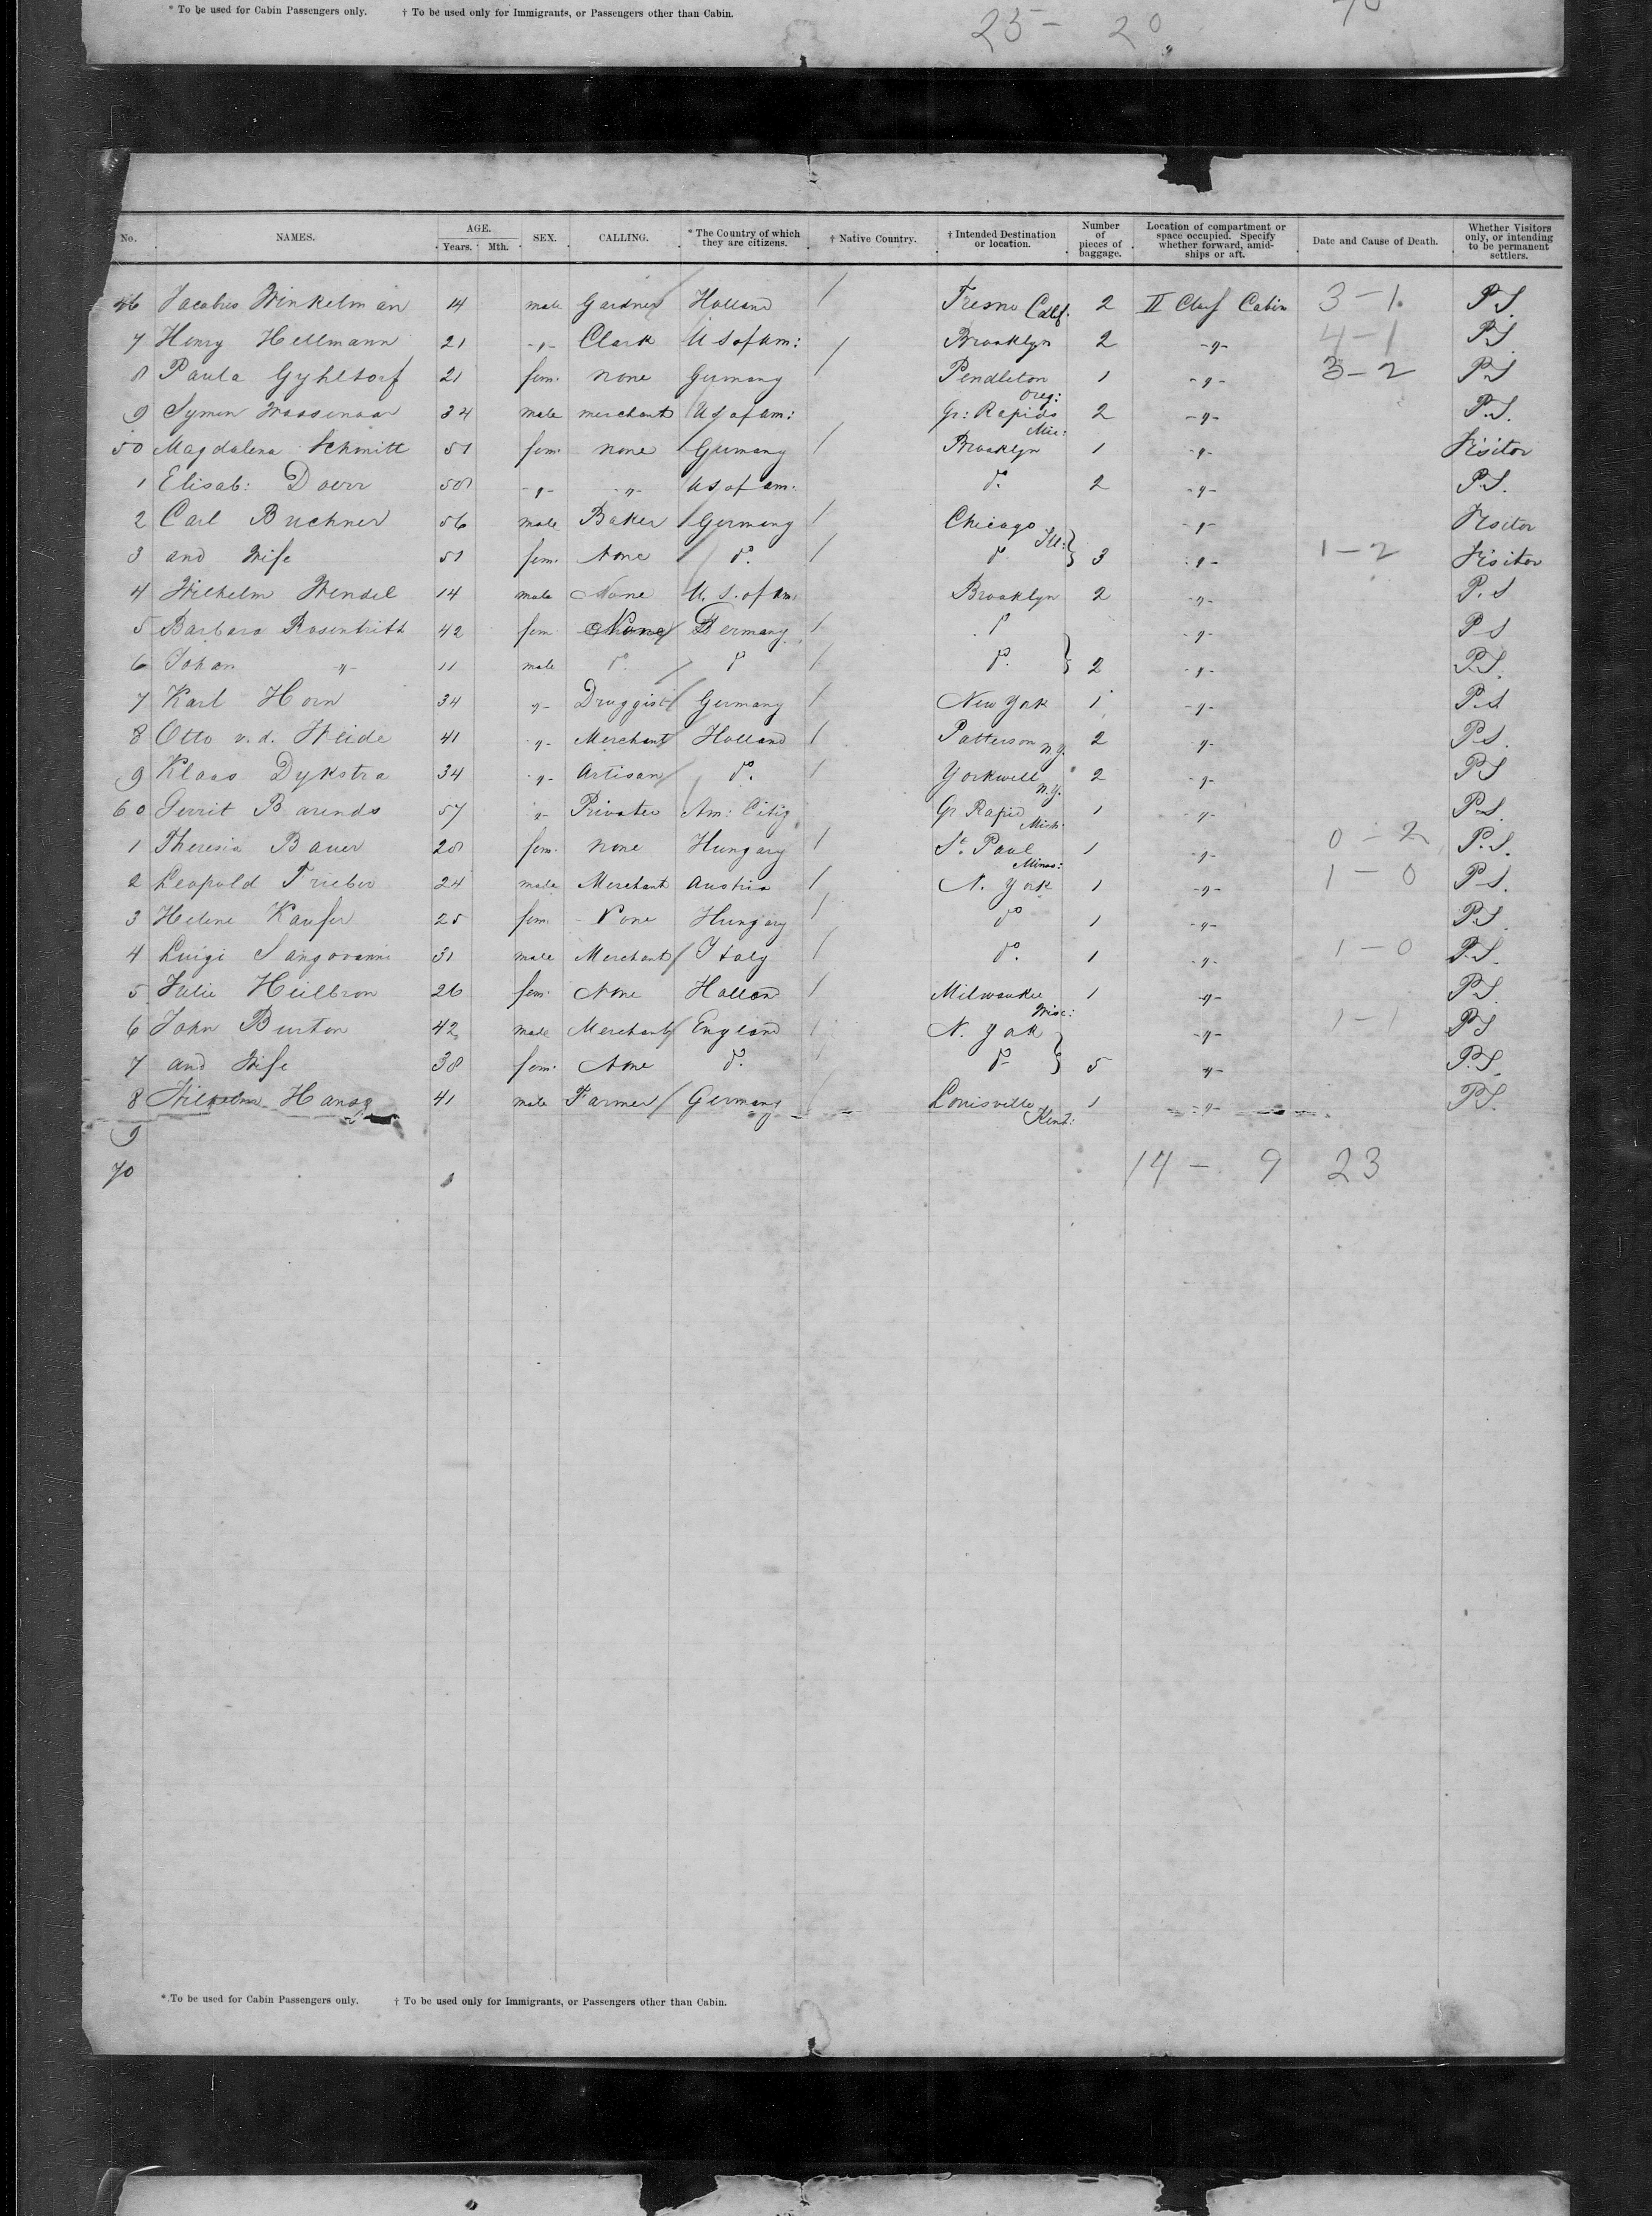 * To be used for Cabin Passengers only. † To be used only for Immigrants, or Passengers other than Cabin.
25 - 20
No. NAMES. AGE. Years. Mth. SEX. CALLING. * The Country of which they are citizens. † Native Country. † Intended Destination or location. Number of pieces of baggage. Location of compartment or space occupied. Specify whether forward, amidships or aft. Date and Cause of Death. Whether Visitors only, or intending to be permanent settlers.
46 Jacobus Winkelman 14 male Gardner Holland / Fresno Calif. 2 II Class Cabin 3-1 P.S.
7 Henry Hellmann 21 -„- Clark U S of Am: Brooklyn 2 -„- 4-1 P.S.
8 Paula Gyhltorf 21 fem. none Germany / Pendleton Oreg: 1 -„- 3-2 P.S
9 Symen Wassenaar 34 male merchant U S of am: Gr: Rapids Mic: 2 -„- P.S.
50 Magdalena Schmitt 51 fem. none Germany / Brooklyn 1 -„- Visitor
1 Elisab: Doerr 58 -„- -„- U S of am. do. 2 -„- P.S.
2 Carl Buchner 56 male Baker Germany / Chicago Ill: -„- Visitor
3 and Wife 51 fem. None do. / do } 3 -„- 1-2 Visitor
4 Wilhelm Wendel 14 male None U. S. of Am. Brooklyn 2 -„- P.S
5 Barbara Rosentritt 42 fem None Germany / do -„- P S
6 Johan -„- 11 male do. do / do. } 2 -„- P.S.
7 Karl Horn 34 -„- Druggist Germany / New York 1 -„- P.S
8 Otto v.d. Weide 41 -„- Merchant Holland / Patterson N.Y. 2 -„- P.S.
9 Klaas Dykstra 34 -„- Artisan do. / Yorkwell N.Y. 2 -„- P.S
60 Gerrit Barends 57 -„- Private Am: Citiz Gr Rapid Mich. 1 -„- P.S.
1 Theresia Bauer 28 fem. none Hungary / St. Paul Minns: 1 -„- 0-2 P.S.
2 Leopold Trieber 24 male Merchant Austria / N. York 1 -„- 1-0 P.S.
3 Helene Kaufer 25 fem. None Hungary / do 1 -„- P.S.
4 Luigi Sangovanni 31 male Merchant Italy / do. 1 -„- 1-0 P.S.
5 Julie Heilbron 26 fem. None Holland / Milwaukee Wisc: 1 -„- P.S.
6 John Burton 42 male Merchant England / N. York -„- 1-1 P.S
7 and Wife 38 fem. None do. / do } 5 -„- P.S.
8 Wilhelm 41 male Farmer Germany / Louisville Kent: 1 -„- P.S.
9
70 14 - 9 23
* To be used for Cabin Passengers only. † To be used only for Immigrants, or Passengers other than Cabin.